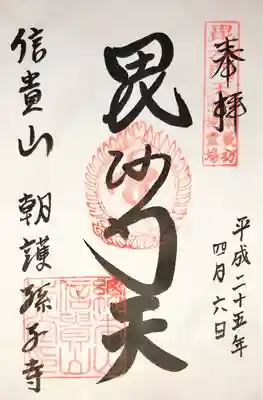 奉拝
平成二十五年
四月六日
毘沙門天
信貴山 朝護孫子寺